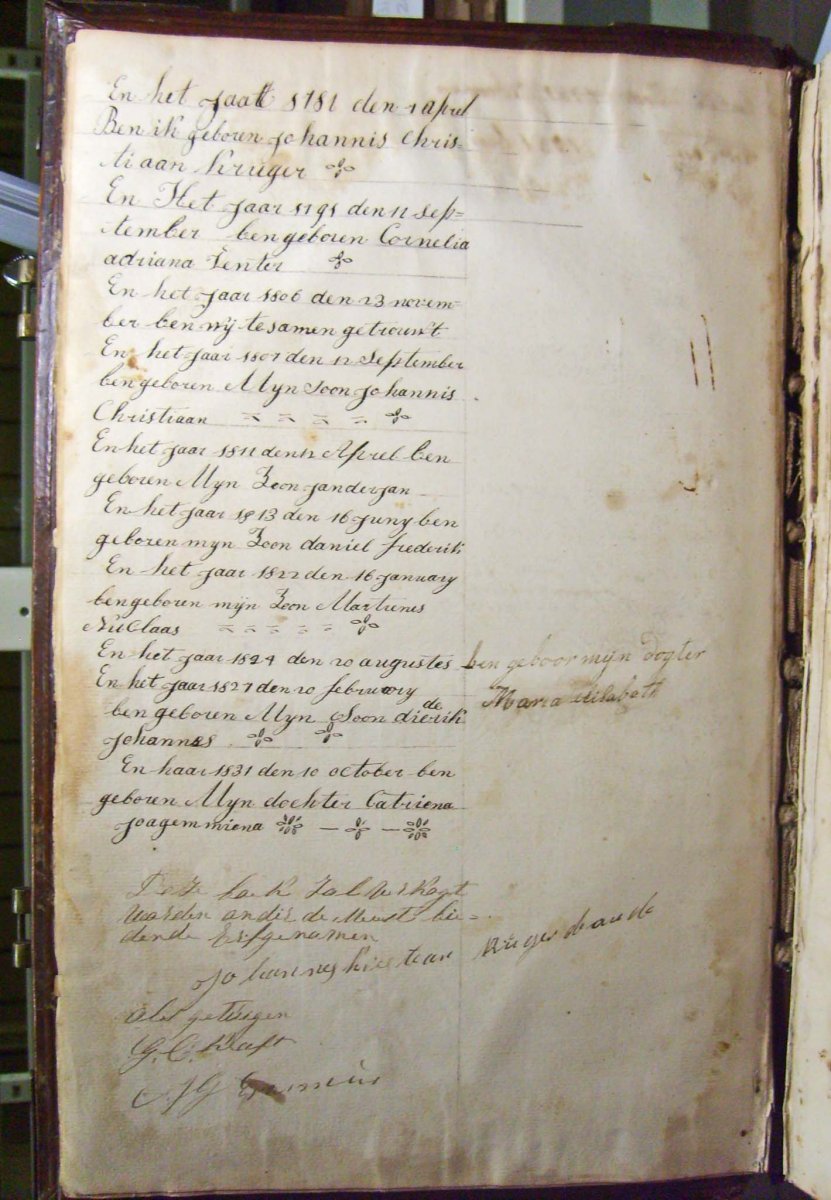 En het Jaar 1781 den 1 april
Ben ik geboren Johannis Chris-
tiaan Kruger
En Het Jaar 1791 den 11 Sep=
tember ben geboren Cornelia
adriana Venter
En het Jaar 1806 den 23 novem-
ber ben wij te samen getrouw't
En het Jaar 1807 den 12 September
ben geboren Myn Soon Johannis
Christiaan
En het Jaar 1811 den 12 April ben
geboren Myn Zoon Janderjan
En het Jaar 1813 den 16 Juny ben
geboren myn Zoon daniel frederik
En het Jaar 1822 den 16 January
ben geboren mijn Zoon Martienes
Niklaas
En het Jaar 1824 den 20 augustes ben geboor mijn dogter
Maria Elisabeth
En het Jaar 1827 den 20 februwary
ben geboren Myn Soon diederik
Johannes
En haar 1831 den 10 October ben
geboren Myn dochter Catriena
Joagemmiena
Deze boek Zal verkogt
worden onder de Meest bie=
dende Erfgenamen
Johannes Kristiaan Kruger de oude
Als getuigen
G. C. Kraft